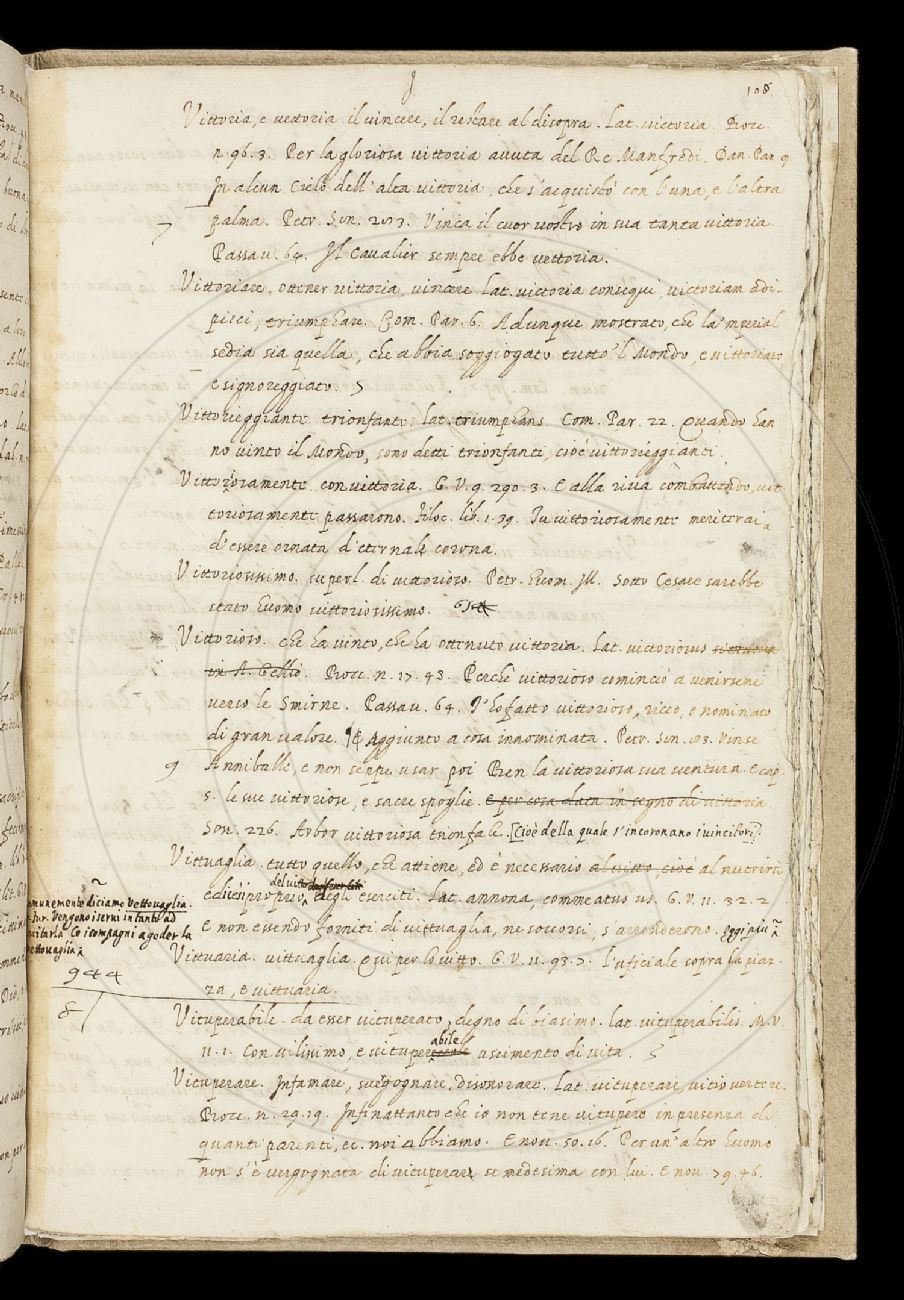 108
Vittoria, e vettoria il vincere, il restare al disopra. Lat. victoria. Bocc.
n. 96. 3. Per la gloriosa vittoria avuta del Re Manfredi. Dan. Par. 9.
In alcun Cielo dell'alta vittoria, che s'acquistò con l'una, e l'altra
palma. Petr. Son. 203. Vinca il cuor vostro in sua tanta vittoria.
7
Passav. 64. Il Cavalier sempre ebbe vettoria.
Vittoriare. ottener vittoria, vincere Lat. victoria consequi, victoriam adi-
pisci, triumphare. Com. Par. 6. Adunque mostrato, che la 'mperial
sedia sia quella, che abbia soggiogato tutto 'l Mondo, e vittoriato
e signoreggiato.
Vittoreggiante trionfante. Lat. triumphans. Com. Par. 22. Quando han
no vinto il Mondo, sono detti trionfanti, cioè vittorieggianti.
Vittoriosamente con vittoria. G. V. 9. 290. 3. E alla riva combattendo, vit
toriosamente passarono. Filoc. lib. 1. 39. Tu vittoriosamente meriterai
d'essere ornata d'eternale corona.
Vittoriosissimo. superl. di vittorioso. Petr. Huom. Ill. Sotto Cesare sarebbe
stato huomo vittoriosissimo.
Vittorioso. che ha vinto, che ha ottenuto vittoria. Lat. victoriosus
in A. Gellio. Bocc. n. 17. 43. Perchè vittorioso cominciò a venirsene
verso le Smirne. Passav. 64. I' ho fatto vittorioso, ricco, e nominato
di gran valore. Aggiunto a cosa innominata. Petr. Son. 83. Vinse
9
Anniballe, e non seppe usar poi Ben la vittoriosa sua ventura. E cap.
5. le sue vittoriose, e sacre spoglie. E per cosa data in segno di vittoria
Son. 226. Arbor vittoriosa trionfale. [Cioè della quale s'incoronano i vincitori].
Vittuaglia. tutto quello, che attiene, ed è necessario al vitto, cioè al nutrirsi
del vitto
e dicesi proprio degli eserciti. Lat. annona, commeatus us. G. V. 11. 32. 2
E non essendo forniti di vittuaglia, ne soccorsi, s'arrenderono. oggi più
omunemente diciamo Vettovaglia.
Fur. Vengono i servi in tanto ad
vitarla Co i compagni a goder la
ettovaglia
Vittuaria. vittuaglia. Qui per lo vitto. G. V. 11. 93. 7. l'uficiale sopra la piaz-
za, e vittuaria.
944
8
Vituperabile da esser vituperato, degno di biasimo. Lat. vituperabilis. M. V.
abile
11. 1. Con vilissimo, e vituper ascimento di vita.
Vituperare. Infamare, svergognare, disonorare. Lat. vituperare, vitio vertere.
Bocc. n. 29. 19. Infinattanto che io non t'ene vitupero in presenza di
quanti parenti, ec. noi abbiamo. E nov. 50. 16. Per un' altro huomo
non s'è vergognata di vituperare se medesima con lui. E nov. 79. 46.